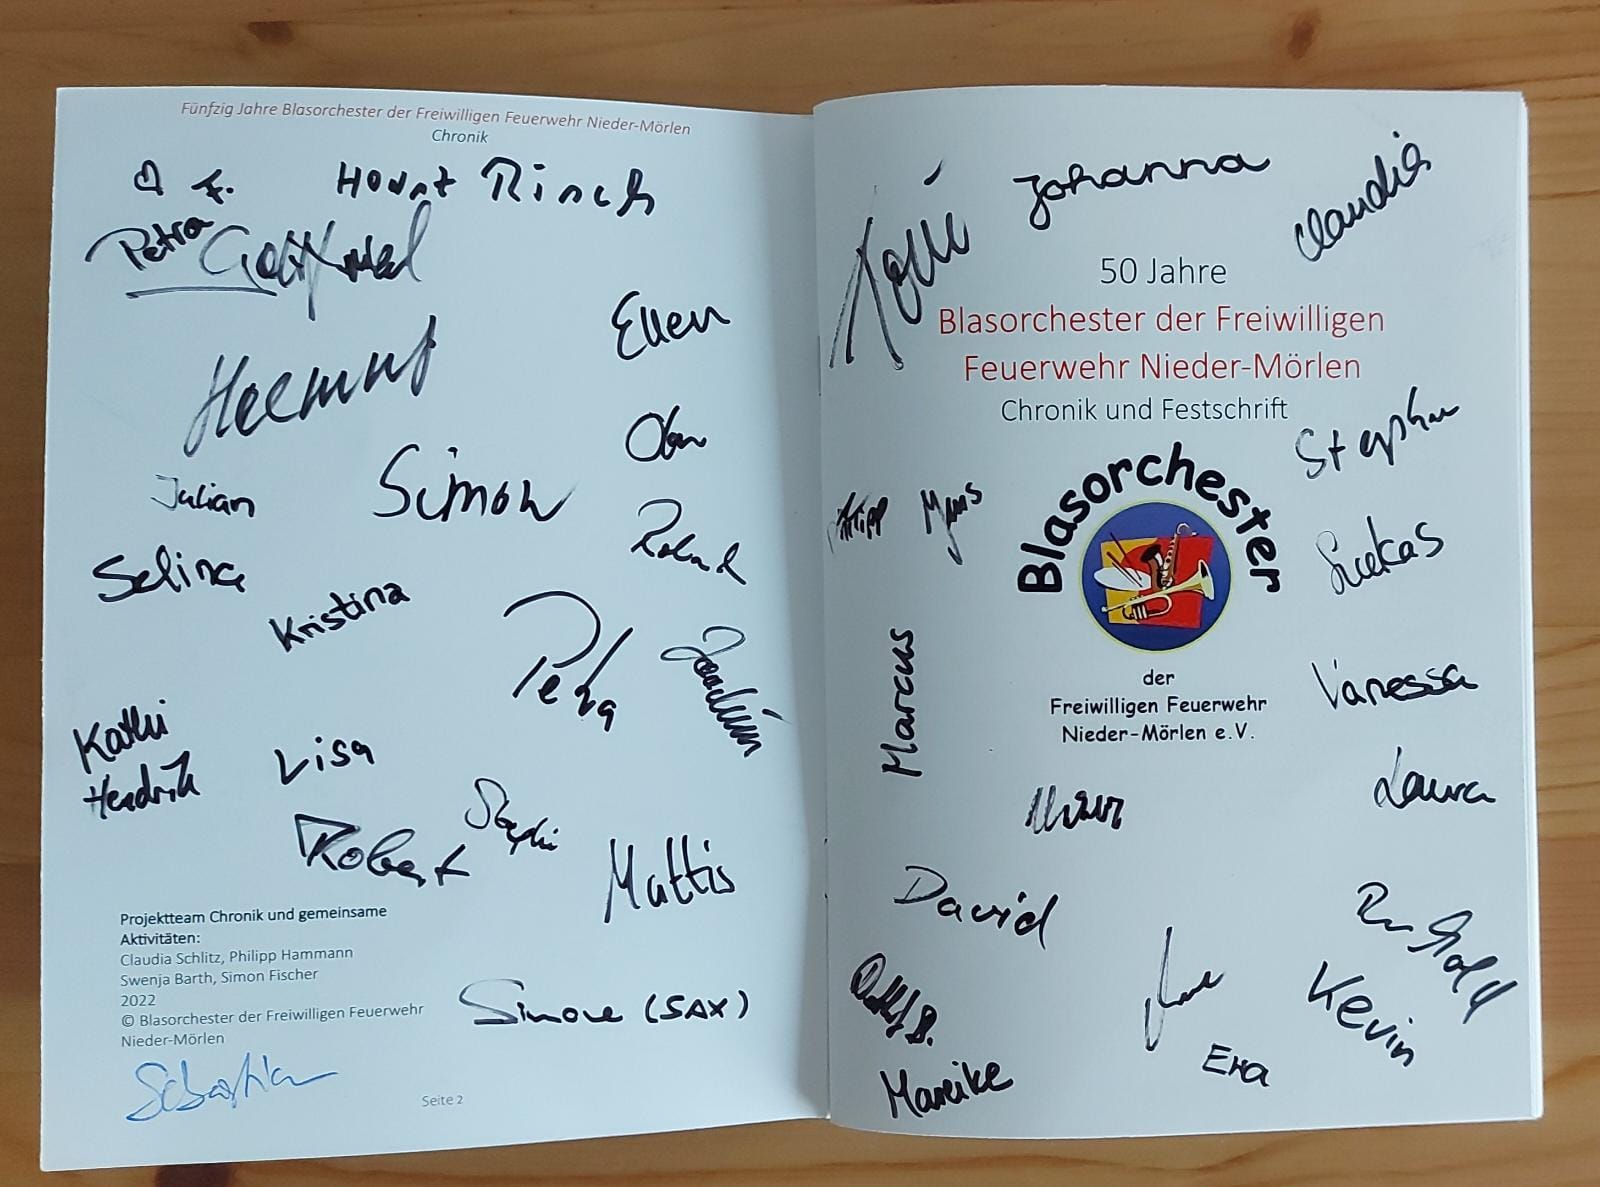 Fünfzig Jahre Blasorchester der Freiwilligen Feuerwehr Nieder-Mörlen
Chronik
Horst Rinsch
Petra
Helmut
Ellen
Julian
Simon
Roland
Selina
Kristina
Petra
Joachim
Kathi
Hendrik
Lisa
Robert
Mattis
Projektteam Chronik und gemeinsame
Aktivitäten:
Claudia Schlitz, Philipp Hammann
Swenja Barth, Simon Fischer
2022
© Blasorchester der Freiwilligen Feuerwehr
Nieder-Mörlen
Simone (SAX)
Sebastian
Seite 2
Johanna
Claudia
50 Jahre
Blasorchester der Freiwilligen
Feuerwehr Nieder-Mörlen
Chronik und Festschrift
Stephan
Blasorchester
Lukas
der
Freiwilligen Feuerwehr
Nieder-Mörlen e.V.
Marcus
Vanessa
Laura
David
Kevin
Mareike